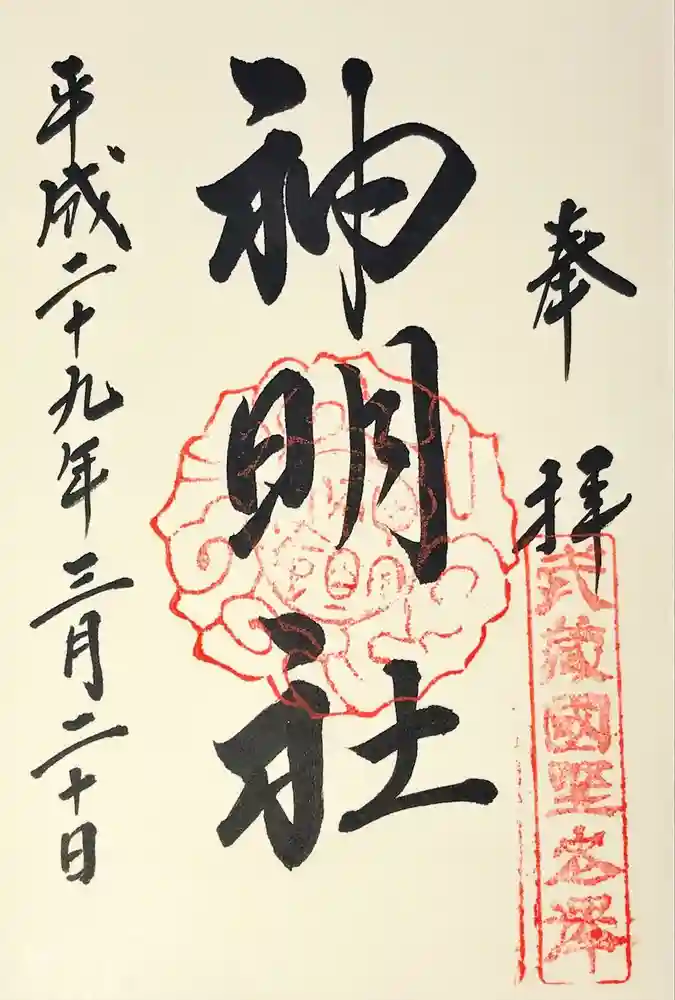 奉拝
武蔵國野老澤
神明社
平成二十九年三月二十日